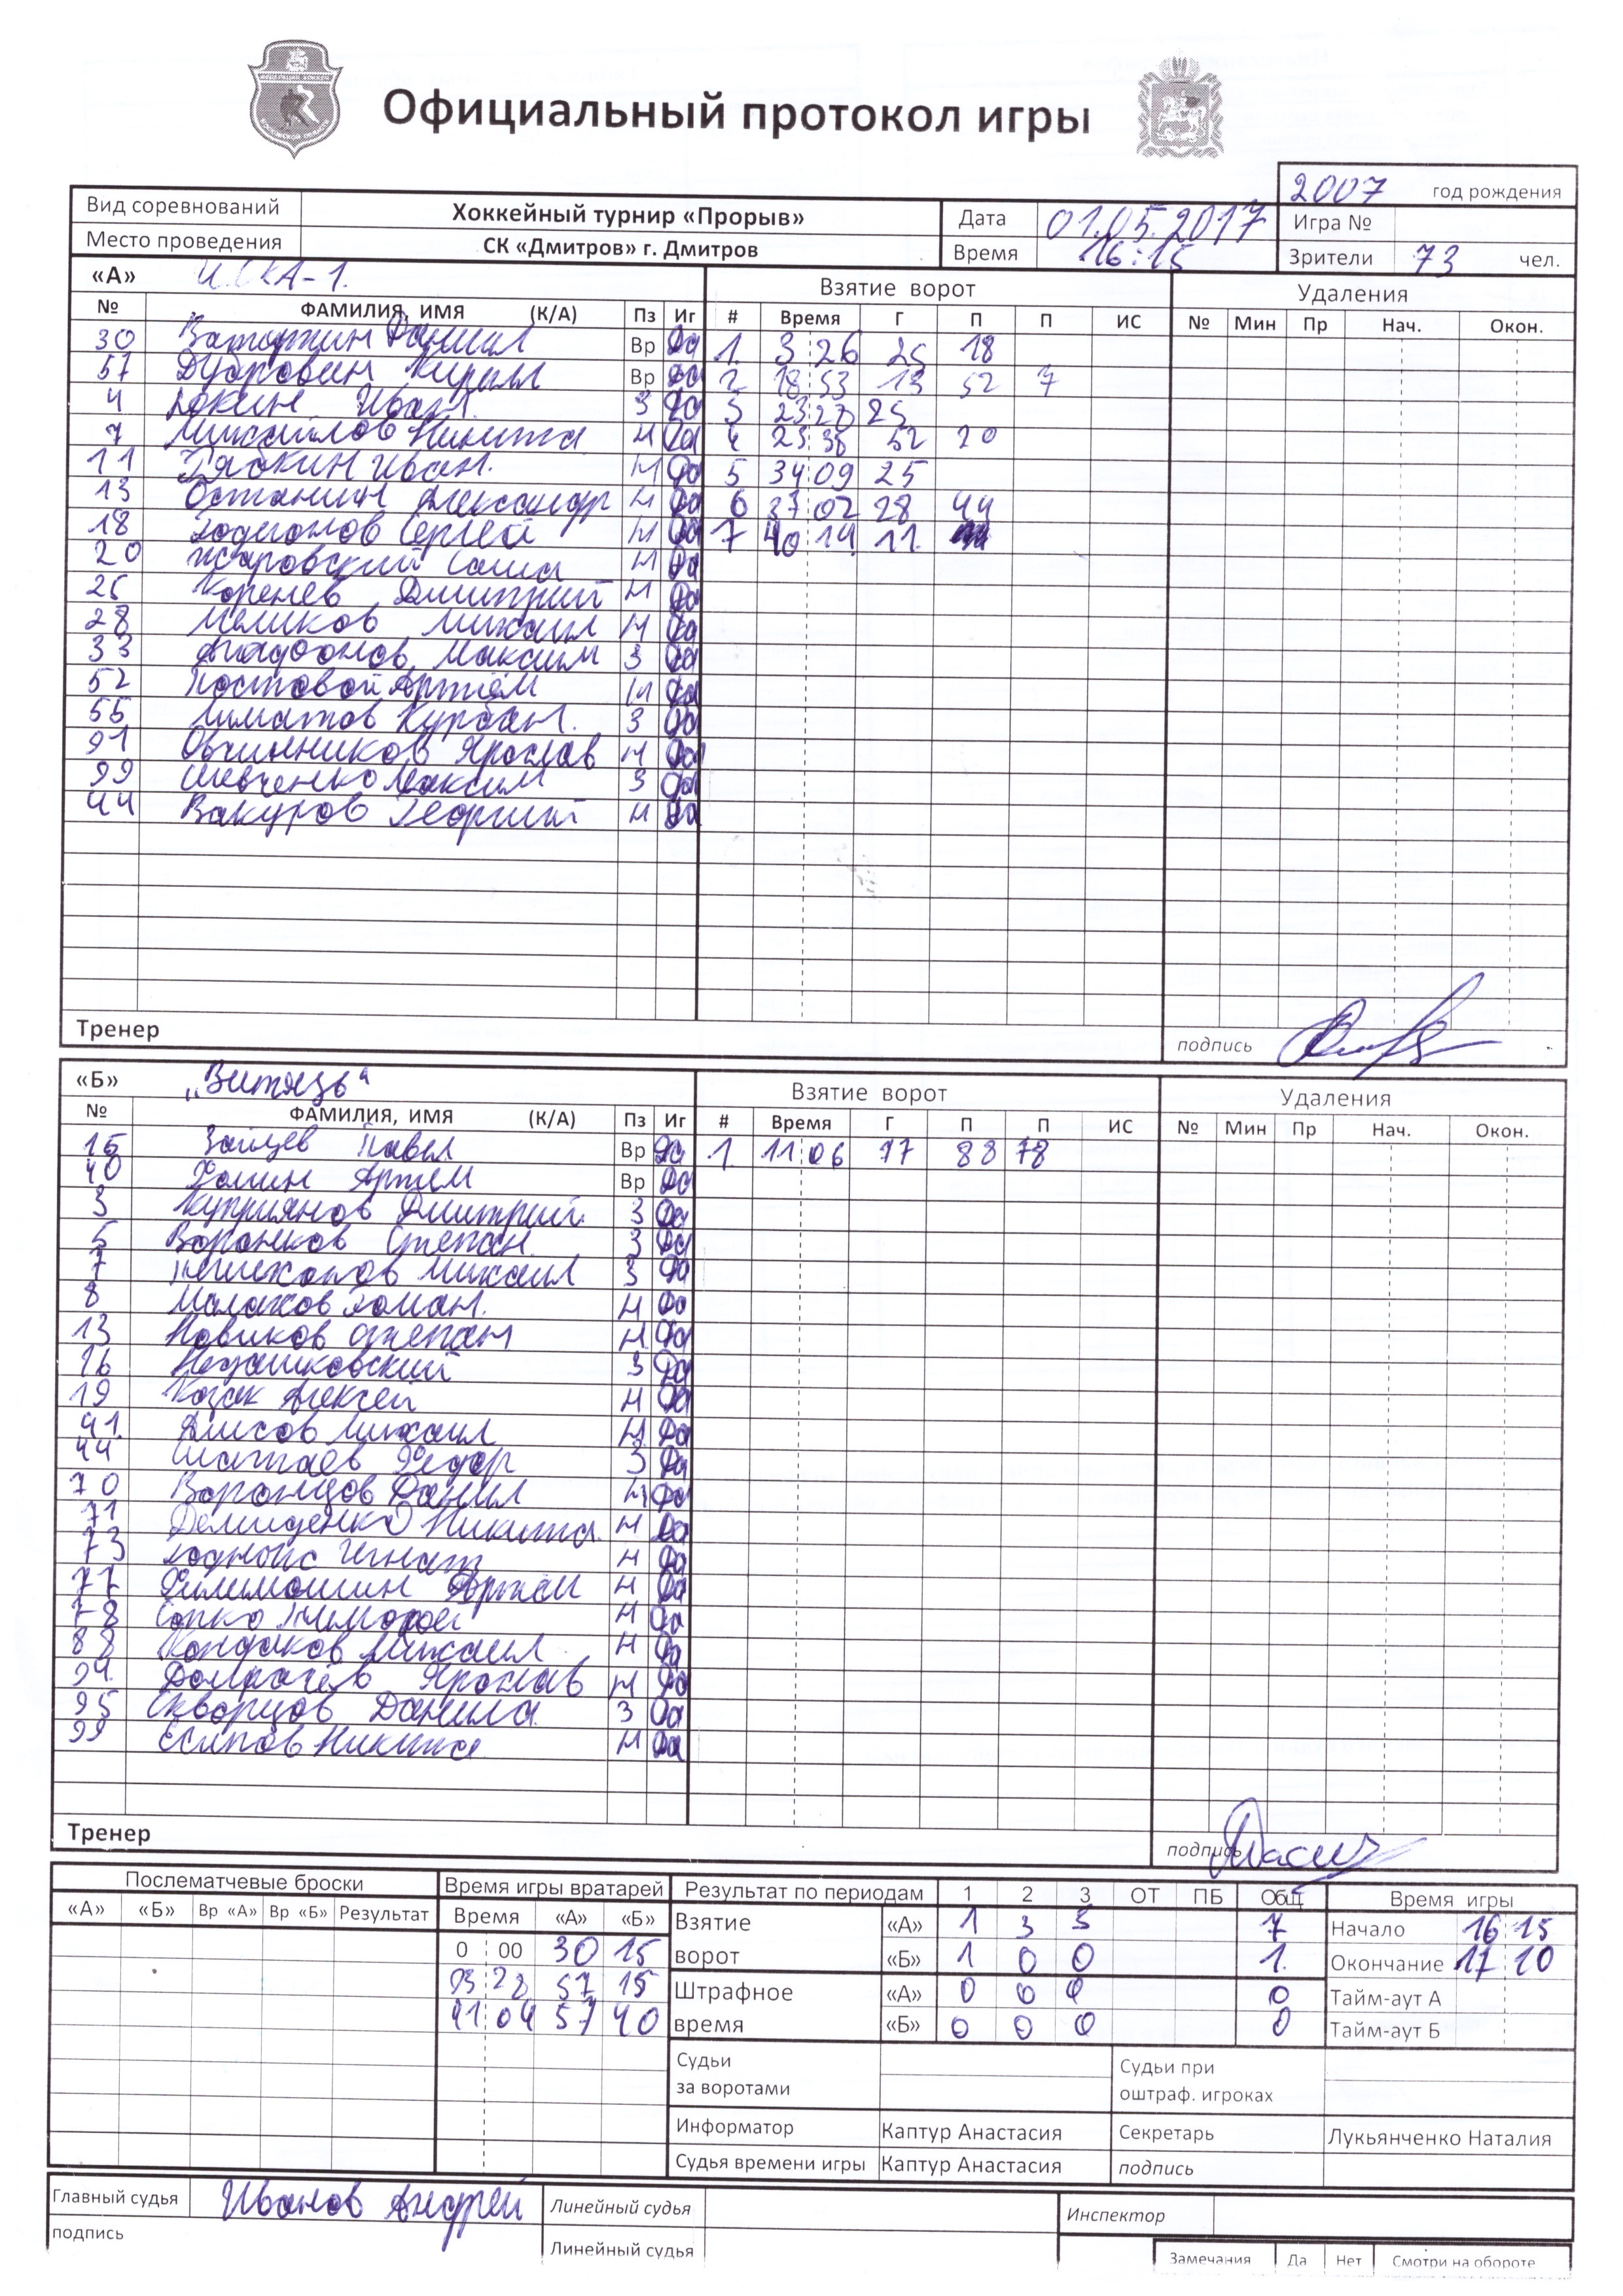 Официальный протокол игры
2007 год рождения
Вид соревнований Хоккейный турнир «Прорыв» Дата 01.05.2017 Игра №
Место проведения СК «Дмитров» г. Дмитров Время 16:15 Зрители 73 чел.
«А» ЦСКА-1. Взятие ворот Удаления
№ ФАМИЛИЯ, ИМЯ (К/А) Пз Иг # Время Г П П ИС № Мин Пр Нач. Окон.
30 Даниил Вр Да 1 3 26 25 18
57 Дубровин Кирилл Вр Да 2 18:53 13 52 7
4 Иван З Да 3 25
7 Михайлов Никита Н Да 4 23 38 52 20
11 Рябкин Иван. Н Да 5 34 09 25
13 Останин Александр Н Да 6 37 02 28 44
18 Сергей Н Да 7 40 19 11
20 Жаровский Саша Н Да
25 Коренев Дмитрий Н Да
28 Меликов Михаил Н Да
33 Максим З Да
52 Постовой Артём Н Да
55 Курбан. З Да
91 Овчинников Ярослав Н Да
99 Шевченко Максим З Да
44 Вакуров Георгий Н Да
Тренер подпись
«Б» „Витязь“ Взятие ворот Удаления
№ ФАМИЛИЯ, ИМЯ (К/А) Пз Иг # Время Г П П ИС № Мин Пр Нач. Окон.
15 Зайцев Павел Вр Да 1 11:06 77 88 78
40 Фомин Артём Вр Да
3 Куприянов Дмитрий З Да
5 Воронков Степан З Да
7 Михаил З Да
8 Малахов Роман. Н Да
13 Новиков Степан Н Да
16 З Да
19 Козак Алексей Н Да
41 Михаил Н Да
44 Фёдор З Да
70 Воронцов Данил Н Да
71 Демиденко Никита Н Да
73 Игнат Н Да
77 Филимошин Артём Н Да
78 Сопко Тимофей Н Да
88 Кондаков Михаил Н Да
94 Домрачев Ярослав Н Да
95 Скворцов Данила З Да
99 Есипов Никита Н Да
Тренер подпись
Послематчевые броски Время игры вратарей Результат по периодам 1 2 3 ОТ ПБ Общ Время игры
«А» «Б» Вр «А» Вр «Б» Результат Время «А» «Б» Взятие «А» 1 3 3 7 Начало 16 15
0 00 30 15 ворот «Б» 1 0 0 1. Окончание 17 10
57 15 Штрафное «А» 0 0 0 0 Тайм-аут А
41:04 57 40 время «Б» 0 0 0 0 Тайм-аут Б
Судьи за воротами Судьи при оштраф. игроках
Информатор Каптур Анастасия Секретарь Лукьянченко Наталия
Судья времени игры Каптур Анастасия подпись
Главный судья Иванов Андрей Линейный судья Инспектор
подпись Линейный судья
Замечания Да Нет Смотри на обороте